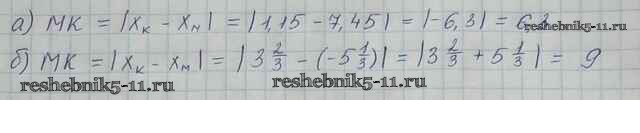 а) MK = |x_к - x_м| = |1,15 - 7,45| = |-6,3| = 6,3
reshebnik5-11.ru
б) MK = |x_к - x_м| = |3 2/3 - (-5 1/3)| = |3 2/3 + 5 1/3| = 9
reshebnik5-11.ru reshebnik5-11.ru